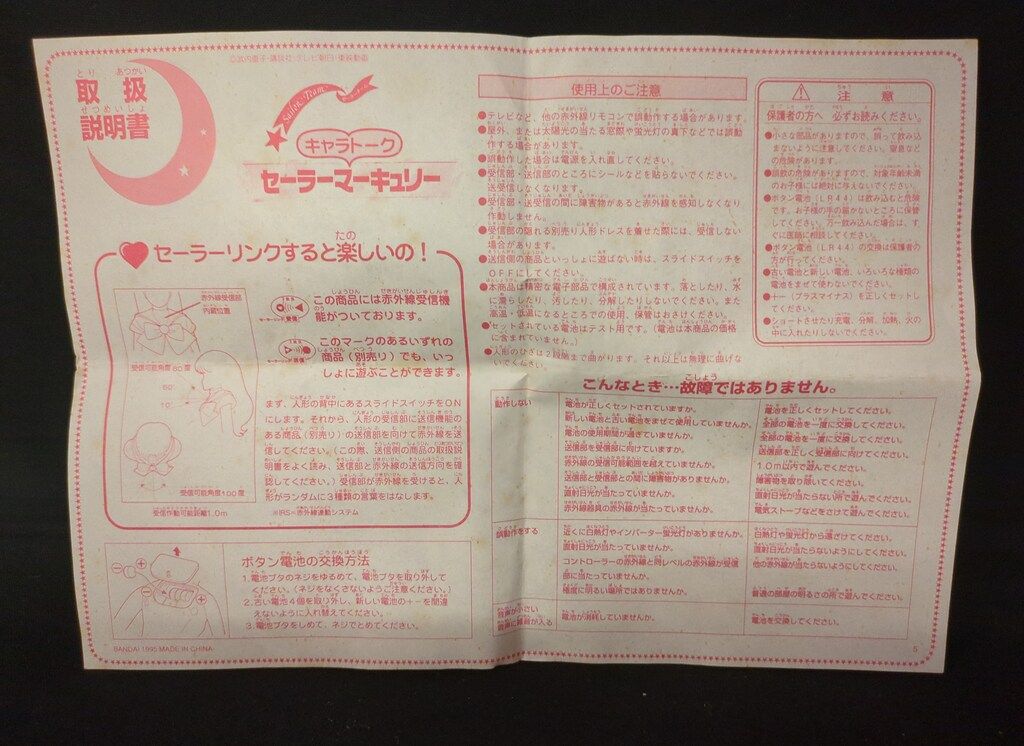 取扱
説明書
©武内直子・講談社・テレビ朝日・東映動画
Sailor Team
キャラトーク
セーラーマーキュリー
セーラーリンクすると楽しいの!
赤外線受信部
内蔵位置
受信可能角度60度
50°
10°
受信可能角度100度
受信作動可能距離1.0m
この商品には赤外線受信機
能がついております。
このマークのあるいずれの
商品(別売り)でも、いっ
しょに遊ぶことができます。
まず、人形の背中にあるスライドスイッチをON
にします。それから、人形の受信部に送信機能の
ある商品(別売り)の送信部を向けて赤外線を送
信してください。(この際、送信側の商品の取扱説
明書をよく読み、送信部と赤外線の送信方向を確
認してください。)受信部が赤外線を受けると、人
形がランダムに3種類の言葉をはなします。
※IRS=赤外線連動システム
ボタン電池の交換方法
1.電池ブタのネジをゆるめて、電池ブタを取り外して
ください。(ネジをなくさないようご注意ください。)
2.古い電池4個を取り外し、新しい電池の+-を間違
えないように入れ替えてください。
3.電池ブタをしめて、ネジでとめてください。
BANDAI 1995 MADE IN CHINA
使用上のご注意
●テレビなど、他の赤外線リモコンで誤動作する場合があります。
●屋外、または太陽光の当たる窓際や蛍光灯の真下などでは誤動
作する場合があります。
●誤動作した場合は電源を入れ直してください。
●受信部・送信部のところにシールなどを貼らないでください。
送受信しなくなります。
●受信部・送受信の間に障害物があると赤外線を感知しなくなり
作動しません。
●受信部の隠れる別売り人形ドレスを着せた際には、受信しない
場合があります。
●送信側の商品といっしょに遊ばない時は、スライドスイッチを
OFFにしてください。
●本商品は精密な電子部品で構成されています。落としたり、水
に濡らしたり、汚したり、分解したりしないでください。また
高温・低温になるところでの使用、保管はおさけください。
●セットされている電池はテスト用です。(電池は本商品の価格
に含まれていません。)
●人形のひざは2段階まで曲がります。それ以上は無理に曲げな
いでください。
注意
保護者の方へ 必ずお読みください。
●小さな部品がありますので、誤って飲み込
まないように注意してください。窒息など
の危険があります。
●誤飲の危険がありますので、対象年齢未満
のお子様には絶対に与えないでください。
●ボタン電池(LR44)は飲み込むと危険
です。お子様の手の届かないところに保管
してください。万一飲み込んだ場合は、すぐ
に医師に相談してください。
●ボタン電池(LR44)の交換は保護者の
方が行ってください。
●古い電池と新しい電池、いろいろな種類の
電池をまぜて使わないでください。
●+-(プラスマイナス)を正しくセットし
てください。
●ショートさせたり充電、分解、加熱、火の
中に入れたりしないでください。
こんなとき…故障ではありません。
動作しない
電池が正しくセットされていますか。
電池を正しくセットしてください。
新しい電池と古い電池をまぜて使用していませんか。
全部の電池を一度に交換してください。
電池の使用期間が過ぎていませんか。
全部の電池を一度に交換してください。
送信部を受信部に向けていますか。
送信部を正しく受信部に向けてください。
赤外線の受信可能範囲を超えていませんか。
1.0m以内で遊んでください。
送信部と受信部との間に障害物がありませんか。
障害物を取り除いてください。
直射日光が当たっていませんか。
直射日光が当たらない所で遊んでください。
赤外線器具の赤外線が当たっていませんか。
電気ストーブなどをさけて遊んでください。
誤動作をする
近くに白熱灯やインバーター蛍光灯がありませんか。
白熱灯や蛍光灯から遠ざけてください。
直射日光が当たっていませんか。
直射日光が当たらないようにしてください。
コントローラーの赤外線と同レベルの赤外線が受信
部に当たっていませんか。
他の赤外線が当たらないようにしてください。
極度に明るい場所ではありませんか。
普通の部屋の明るさの所で遊んでください。
音声が小さい
音声に雑音が入る
電池が消耗していませんか。
電池を交換してください。
5